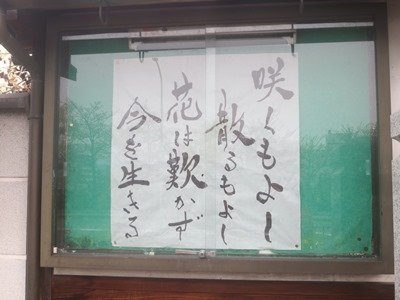 咲くもよし
散るもよし
花は歎かず
今を生きる